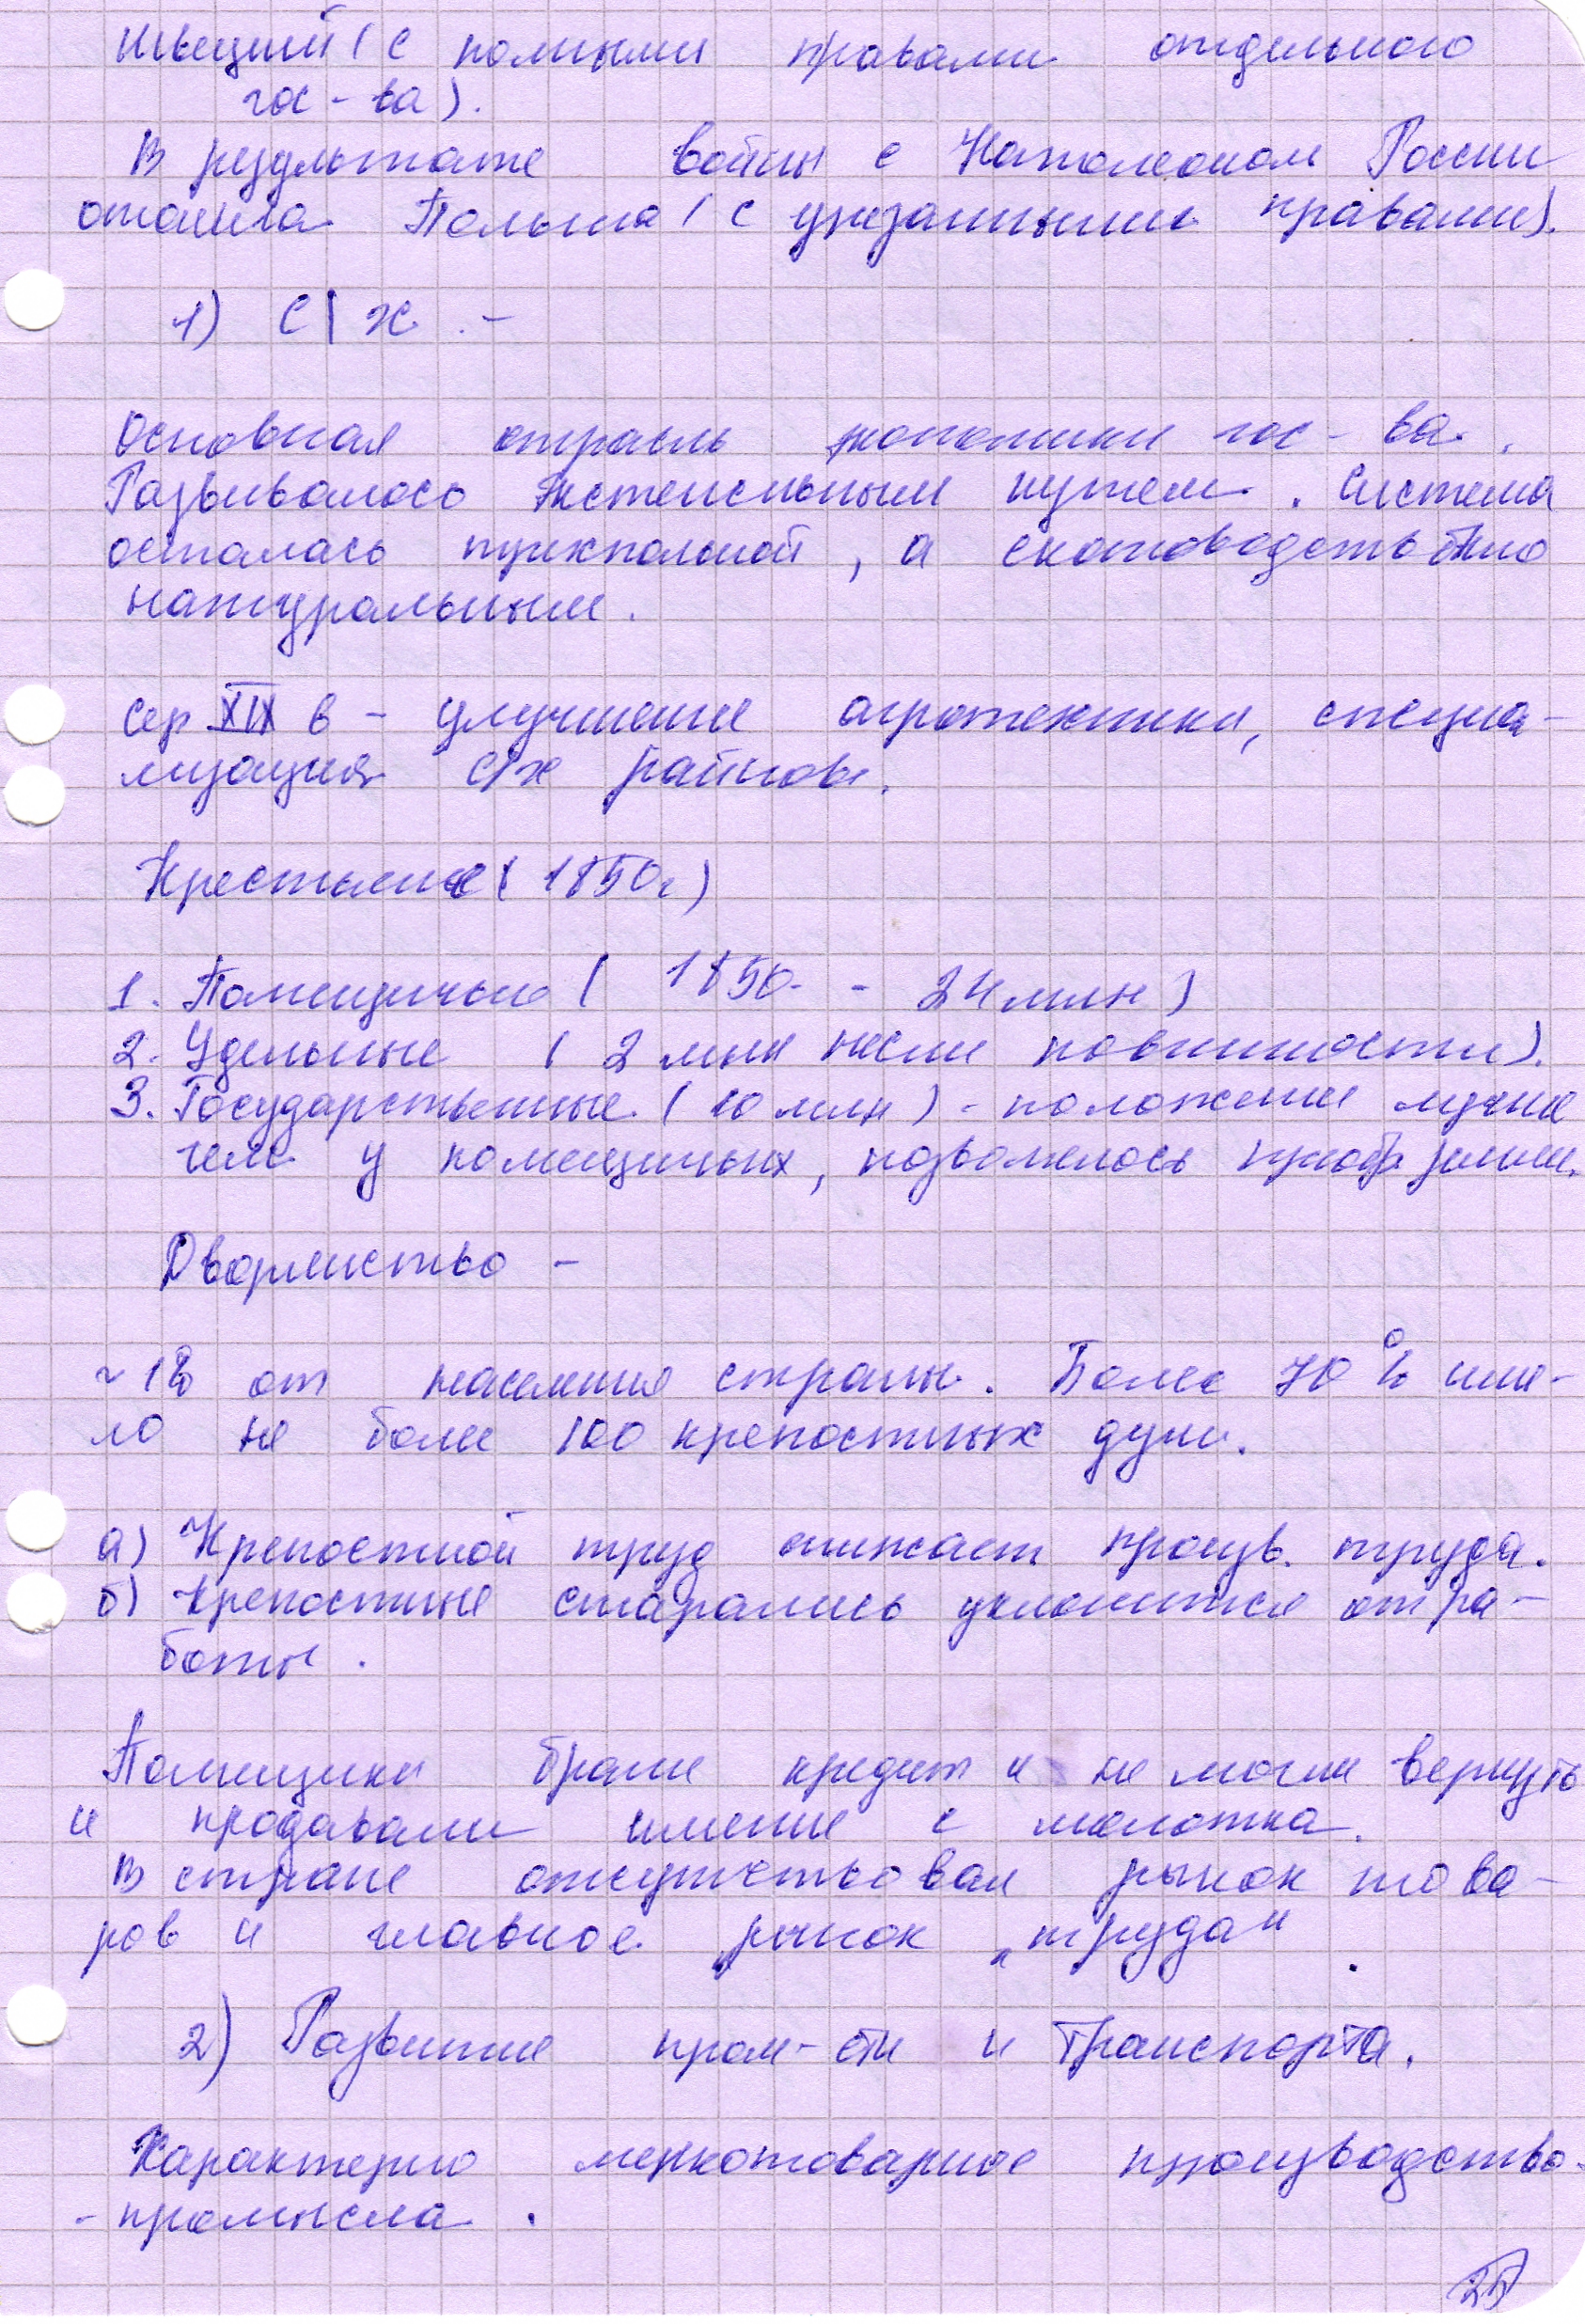 Швеций (с полными правами отдельного
гос-ва).
В результате войны с Наполеоном России
отошла Польша (с урезанными правами).
1) С/х -
Основная отрасль экономики гос-ва.
Развивалось экстенсивным путем. Система
осталась трехпольной, а скотоводство было
натуральным.
Сер XIX в - улучшение агротехники, специа-
лизация с/х районов.
Крестьяне (1850г)
1. Помещичьи (1850 - 24 млн)
2. Удельные (2 млн несли повинности).
3. Государственные (10 млн) - положение лучше
чем у помещичьих, позволялось приобр земли.
Дворянство -
~ 1% от населения страны. Более 70% име-
ло не более 100 крепостных душ.
а) Крепостной труд снижает произв. труда.
б) Крепостные старались уклонится от ра-
боты.
Помещики брали кредит и не могли вернуть
и продавали имение с молотка.
В стране отсутствовал рынок това-
ров и главное рынок „труда“.
2) Развитие пром-сти и транспорта.
Характерно мелкотоварное производство-
- промысла.
25